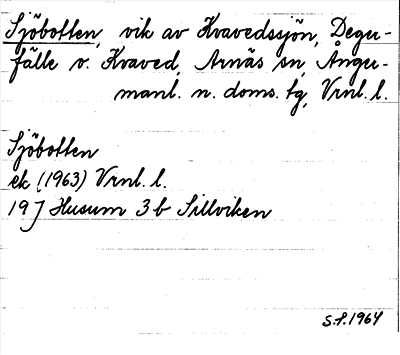 Sjöbotten, vik av Kvavedssjön, Deger-
fälle v. Kvaved, Arnäs sn, Ånger-
manl. n. doms. tg, Vrnl. l.
Sjöbotten
ek (1963) Vrnl. l.
19 J Husum 3 b Sillviken
S.F. 1964